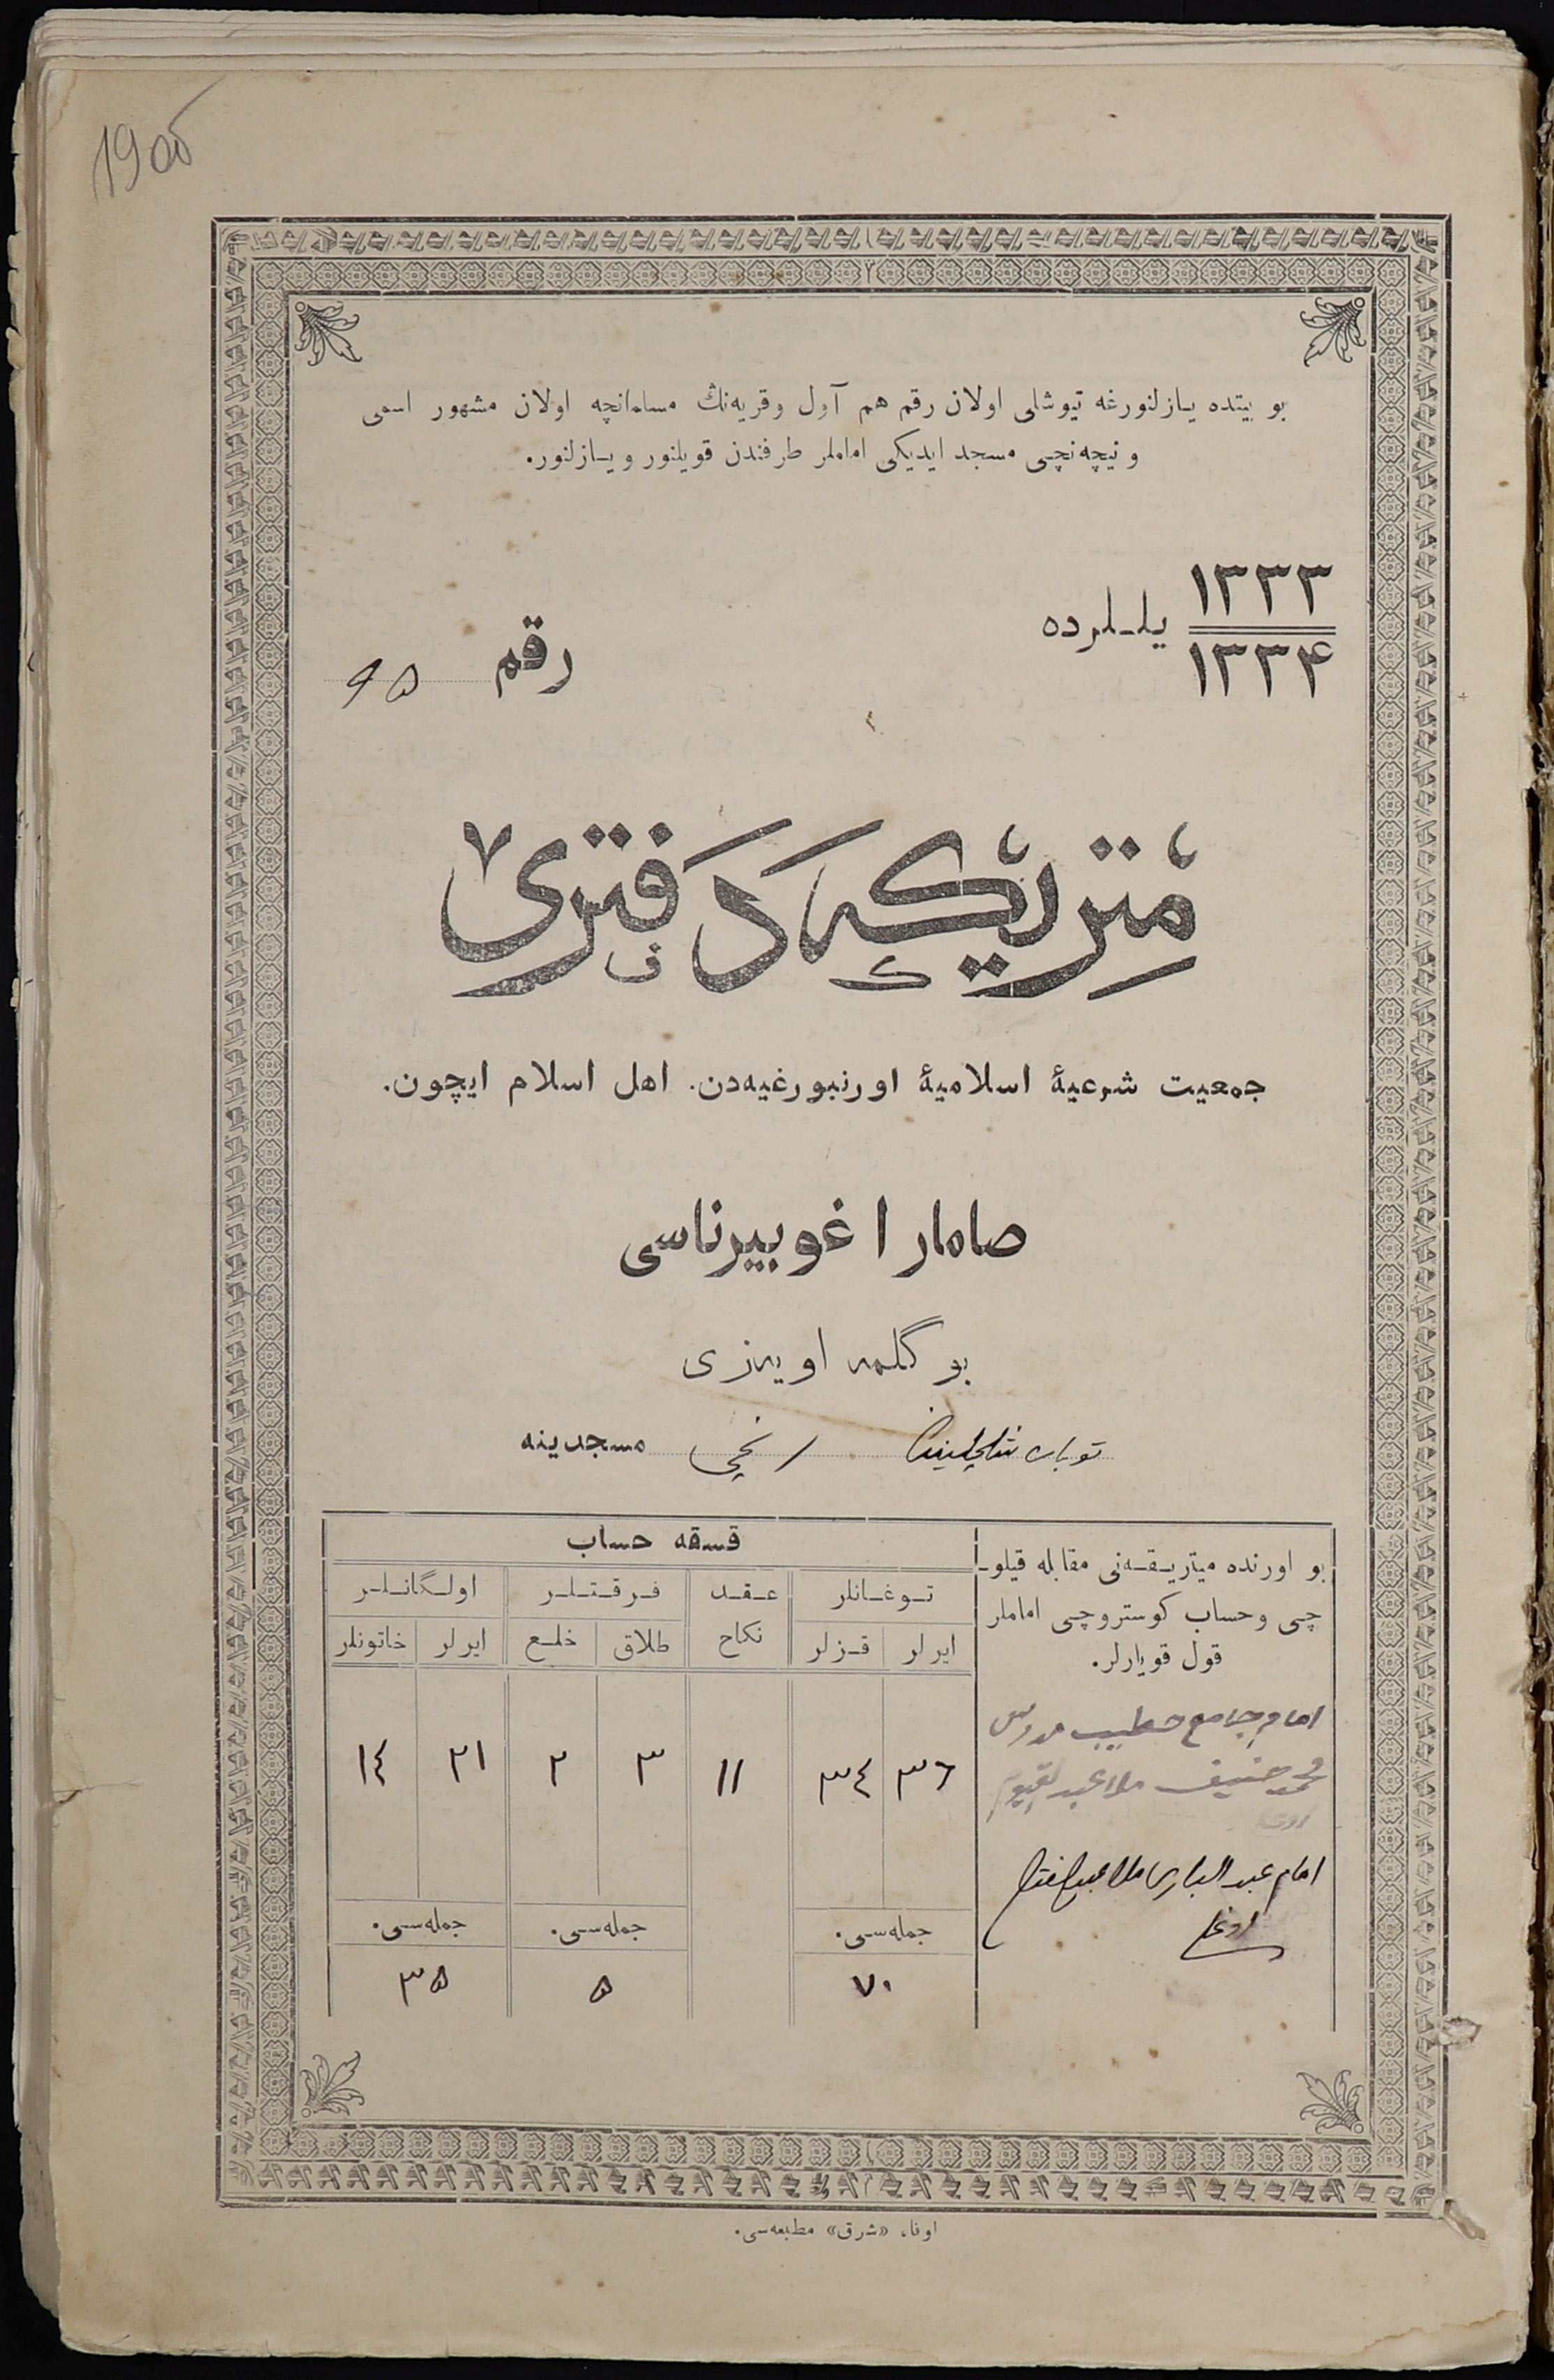 190
بو بیتده یازلنورغه تیوشلی اولان رقم هم آول وقریه‌نڭ مسامانچه اولان مشهور اسمی
و نیچه‌نچی مسجد ایدیکی اماملر طرفندن قویلنور و یازلنور.
۱۳۳۳
۱۳۳۴ یللرده
رقم ۹۵
متریکه دفتری
جمعیت شرعیهٔ اسلامیهٔ اورنبورغیه‌دن. اهل اسلام ایچون.
صامارا غوبیرناسی
بوگلمه اویه‌زی
توبان ۱ نچی مسجدینه
بو اورنده میتریقه‌نی مقابله قیلو-
چی وحساب کوستروچی اماملر
قول قویارلر.
امام جامع خطیب مدرس
محمد حنیف ملا عبد القیوم
امام عبد الباری ملا عبد الفتاح
اوغلی
قسقه حساب
توغانلر عقد نکاح فرقتلر اولگانلر
ایرلر قزلر طلاق خلع ایرلر خاتونلر
۳٦ ۳٤ ۱۱ ۳ ۲ ۲۱ ۱٤
جمله‌سی. جمله‌سی. جمله‌سی.
۷۰ ۵ ۳۵
اوفا، «شرق» مطبعه‌سی.